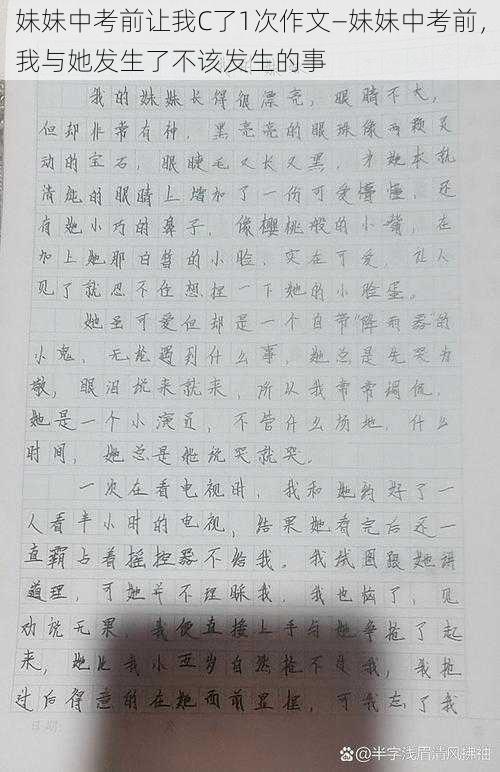 妹妹中考前让我C了1次作文–妹妹中考前，
我与她发生了不该发生的事
我的妹妹长得很漂亮，眼睛不大，
但却非常有神，黑亮亮的眼珠像两颗灵
动的宝石，眼睫毛又长又黑，为她本就
清纯的眼睛上增加了一份可爱懵懂，还
有她小巧的鼻子，像樱桃般的小嘴，在
加上她那白皙的小脸，实在可爱，让人
见了就忍不住想捏一下她的小脸蛋。
她虽可爱但却是一个自带“降雨器”的
小鬼，无论遇到什么事，她总是先哭为
敬，眼泪说来就来，所以我常常调侃，
她是一个小演员，不管什么场地，什么
时间，她总是能说哭就哭。
一次在看电视时，我和她约好了一
人看半小时的电视，结果她看完后还一
直霸占着摇控器不给我。我试图跟她讲
道理，可她并不理睬我，我也恼了，见
劝说无果，我便直接上手与她争抢了起
来，她比我小五岁自然抢不过我，我抢
过后得意的在她面前显摆，可我忘了我
日期:
@半字浅眉清风拂袖